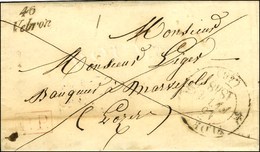 46
Vebron
Monsieur
Monsieur Liger
Banquier à marvejols
(Lozère)